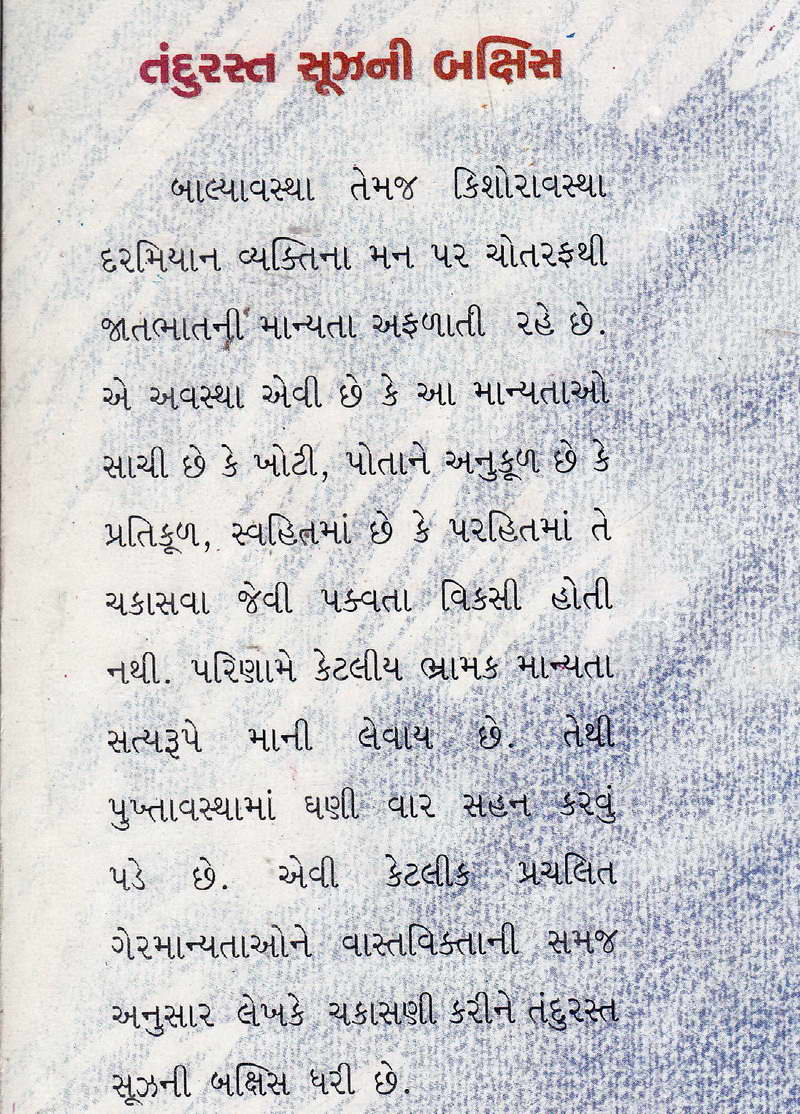 તંદુરસ્ત સૂઝની બક્ષિસ
બાલ્યાવસ્થા તેમજ કિશોરાવસ્થા
દરમિયાન વ્યક્તિના મન પર ચોતરફથી
જાતભાતની માન્યતા અફળાતી રહે છે.
એ અવસ્થા એવી છે કે આ માન્યતાઓ
સાચી છે કે ખોટી, પોતાને અનુકૂળ છે કે
પ્રતિકૂળ, સ્વહિતમાં છે કે પરહિતમાં તે
ચકાસવા જેવી પક્વતા વિકસી હોતી
નથી. પરિણામે કેટલીય ભ્રામક માન્યતા
સત્યરૂપે માની લેવાય છે. તેથી
પુખ્તાવસ્થામાં ઘણી વાર સહન કરવું
પડે છે. એવી કેટલીક પ્રચલિત
ગેરમાન્યતાઓને વાસ્તવિક્તાની સમજ
અનુસાર લેખકે ચકાસણી કરીને તંદુરસ્ત
સૂઝની બક્ષિસ ધરી છે.